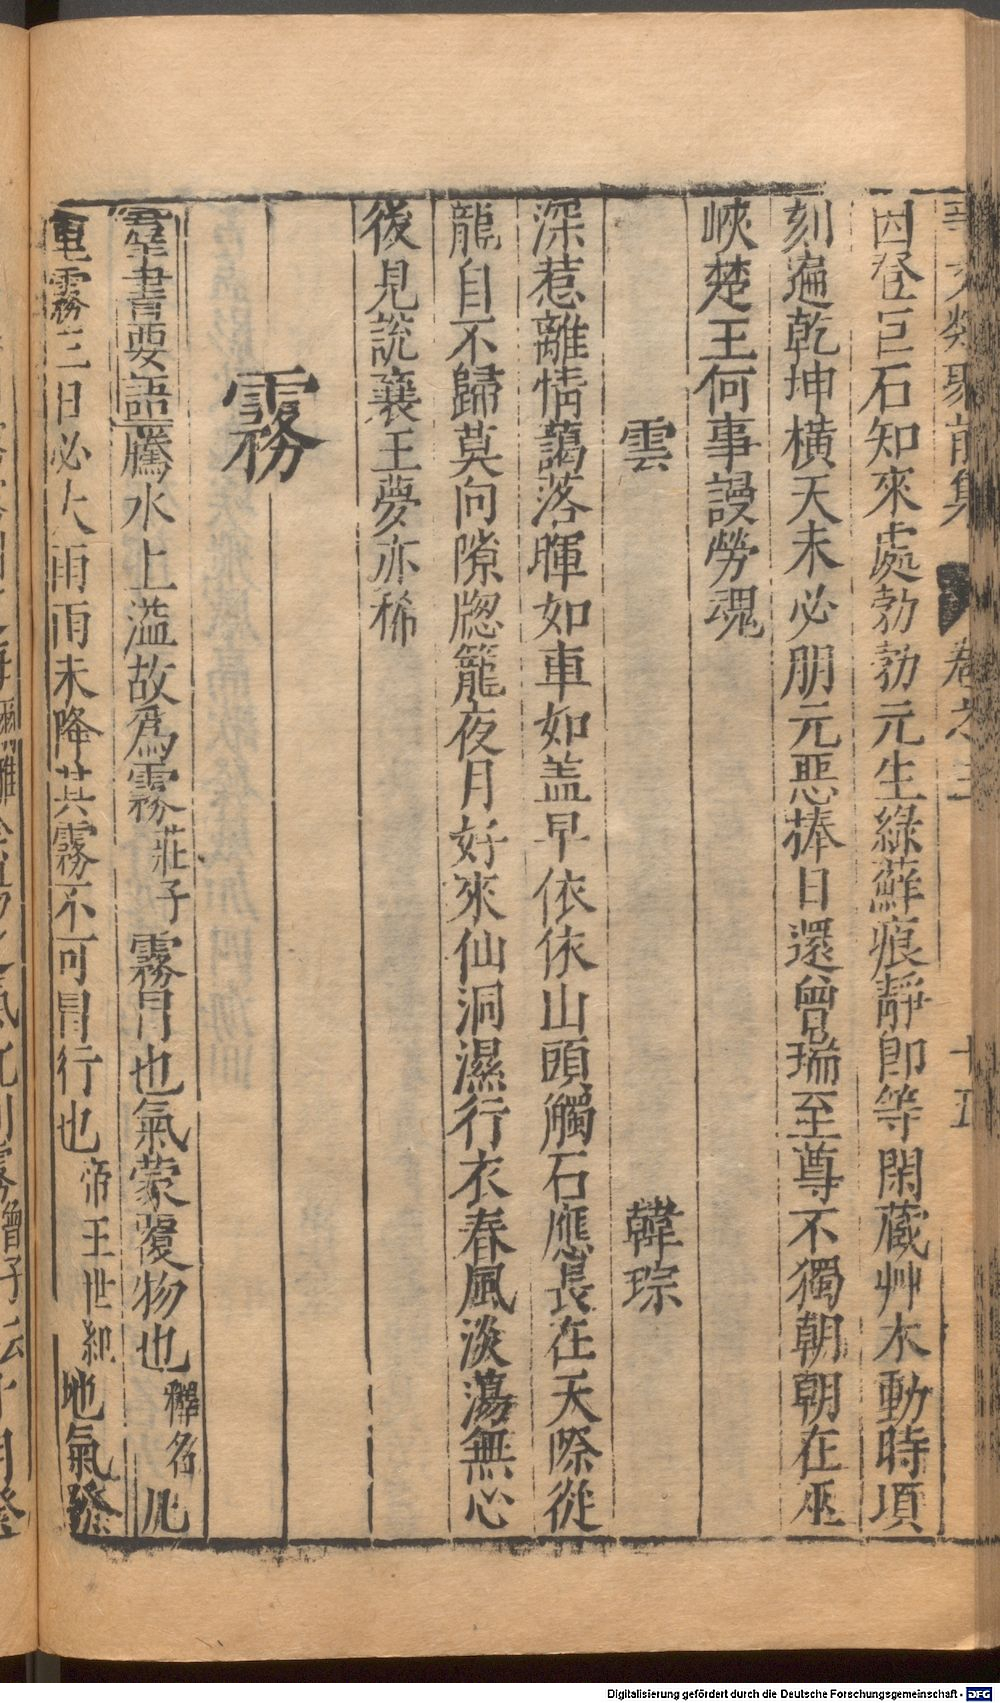 事文類聚前集 卷之三 十五
因登巨石知來處勃勃元生綠蘚痕靜即等閑藏艸木動時頃
刻遍乾坤橫天未必朋元惡捧日還曾瑞至尊不獨朝朝在巫
峽楚王何事謾勞魂
雲 韓琮
深惹離情藹落暉如車如盖早依依山頭觸石應長在天際從
龍自不歸莫向隙牎籠夜月好來仙洞濕行衣春風淡蕩無心
後見説襄王夢亦稀
霧
羣書要語騰水上溢故爲霧莊子霧冒也氣蒙覆物也釋名凡
重霧三日必大雨雨未降其霧不可冒行也帝王世紀地氣發
Digitalisierung gefördert durch die Deutsche Forschungsgemeinschaft - DFG